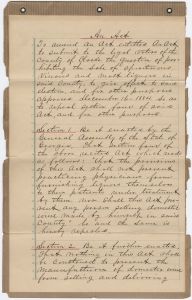 An Act
To amend an Act entitled An Act
to submit to the legal voters of the
County of Floyd the question of pro-
hibiting the sale of Spirituous,
Vinous and malt liquors in
said County, to give effect to same
election, and for other purposes
approved December 1884, so as
to repeal
Act, and for other purposes.
Section 1. Be it enacted by the
General Assembly of the State of
Georgia, That Section four of
the above recited Act which reads
as follows: "That the provisions
of this Act shall not prevent
practicing physicians from
furnishing liquors themselves
to their patients under treatment
by them nor shall this Act pre-
vent any person selling domestic
wine made by himself in said
County" be and the same is
hereby repealed.
Section 2. Be it further enacted,
That nothing in this Act shall
be construed to prevent the
manufacturers of domestic wine
from selling and delivering